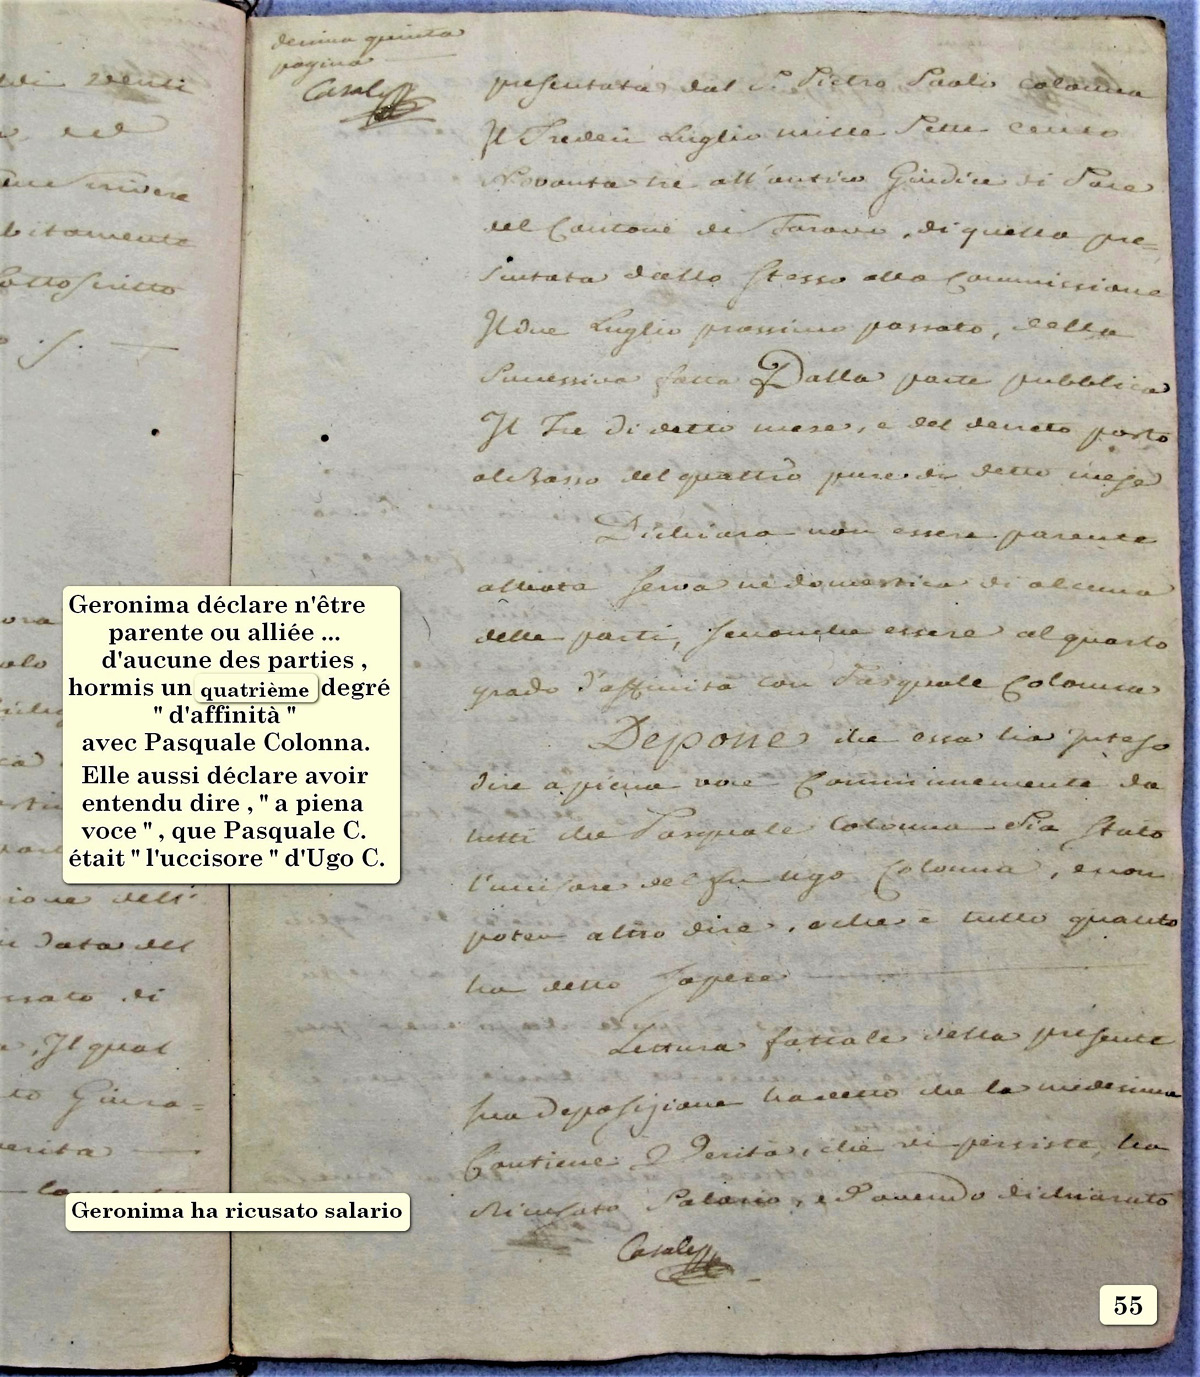 ddi venti
del
scrivere
bitamente
sottoscritto
S.
decima quinta
pagina
Casale
presentata dal S. Pietro Paolo Colonna
Il Tredeci Luglio mille Sette cento
Novanta tre all'antico Giudice di Pace
del Cantone di Taravo, di quella pre=
sentata dallo stesso alla Commissione
Il due Luglio prossimo passato, della
Successiva fatta Dalla parte pubblica
Il Tre di detto mese, e del decreto posto
al Basso del quattro pure di detto mese
Dichiara non essere parente
alleata serva ne domestica di alcuna
delle parti, senonche essere al quarto
grado d'affinità con Pasquale Colonna
Depone che essa ha inteso
dire a piena voce Communemente da
tutti che Pasquale Colonna Sia Stato
l'uccisore del fu Ugo Colonna, e non
poter altro dire, e che è tutto quanto
ha detto Sapere
Lettura fattale della presente
Sua deposizione ha detto che la medesima
Contiene Verità, che vi persiste, ha
Ricusato Salario, ed avendo dichiarato
Casale
Geronima déclare n'être
parente ou alliée ...
d'aucune des parties ,
hormis un quatrième degré
" d'affinità "
avec Pasquale Colonna.
Elle aussi déclare avoir
entendu dire , " a piena
voce " , que Pasquale C.
était " l'uccisore " d'Ugo C.
ione dell'
Data del
ssato di
, Il qual
to Giura=
verita
Geronima ha ricusato salario
55